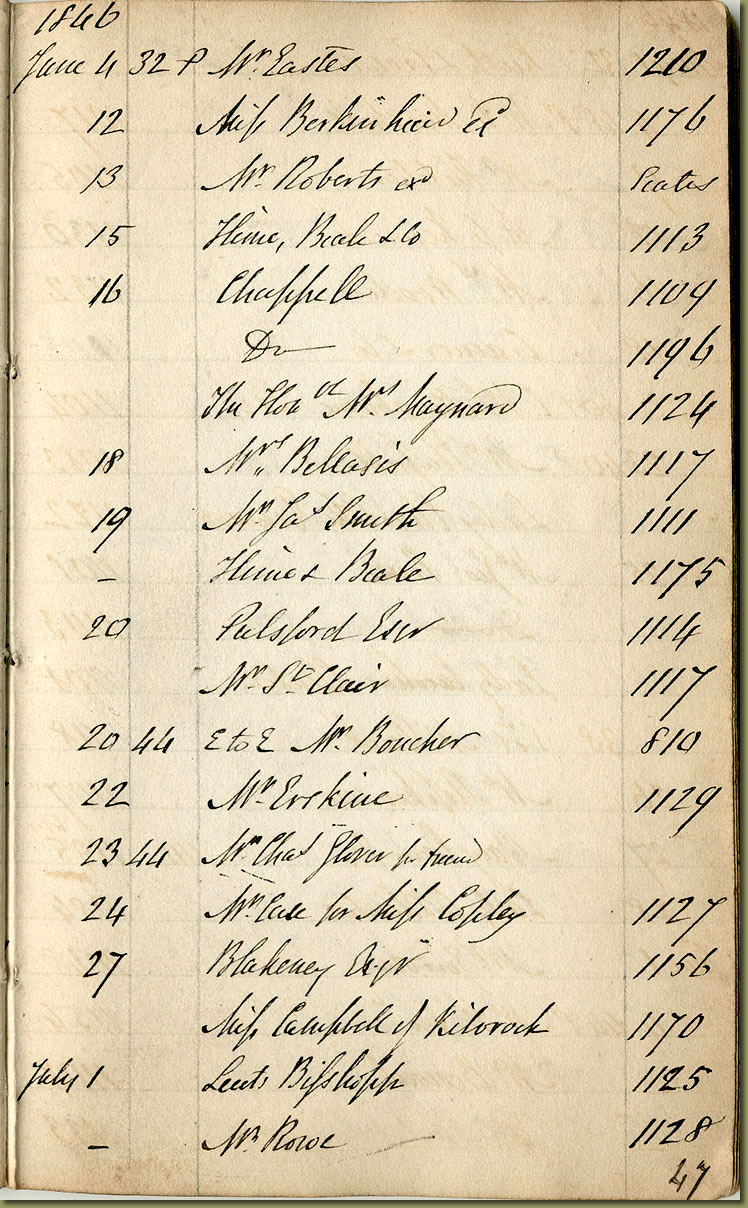 1846
June 4 32 P Mr. Eastes 1210
12 Miss Berkin head 1176
13 Mr. Roberts exd
15 Hime, Beale & Co 1113
16 Chappell 1109
Do 1196
The Honble Mrs. Maynard 1124
18 Mrs. Bellasis 1117
19 Mr. Jas. Smith 1111
– Hime & Beale 1175
20 Pulsford Esqr 1114
Mr. St. Clair 1117
20 44 E to E Mr. Boucher 810
22 Mr. Erskine 1129
23 44 Mr. Chas. Glover for friend
24 Mr. Case for Miss Copley 1127
27 Blakeney Esqr 1156
Miss Campbell of Kilvrock 1170
July 1 Leut. Bisshopp 1125
– Mr. Rowe 1128
47